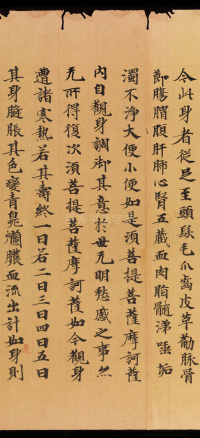 今此身者從足至頭髮毛爪齒皮革筋脉骨
節腸胃腹肝肺心腎五藏血肉脂髓涕唾垢
濁不淨大便小便如是須菩提菩薩摩訶薩
內自觀身調御其意於世无明愁慼之事无
所得復次須菩提菩薩摩訶薩如今觀身
遭諸寒熱若其壽終一日若二日三日四日五日
其身膖脹其色變青臭爛膿血流出計如身則